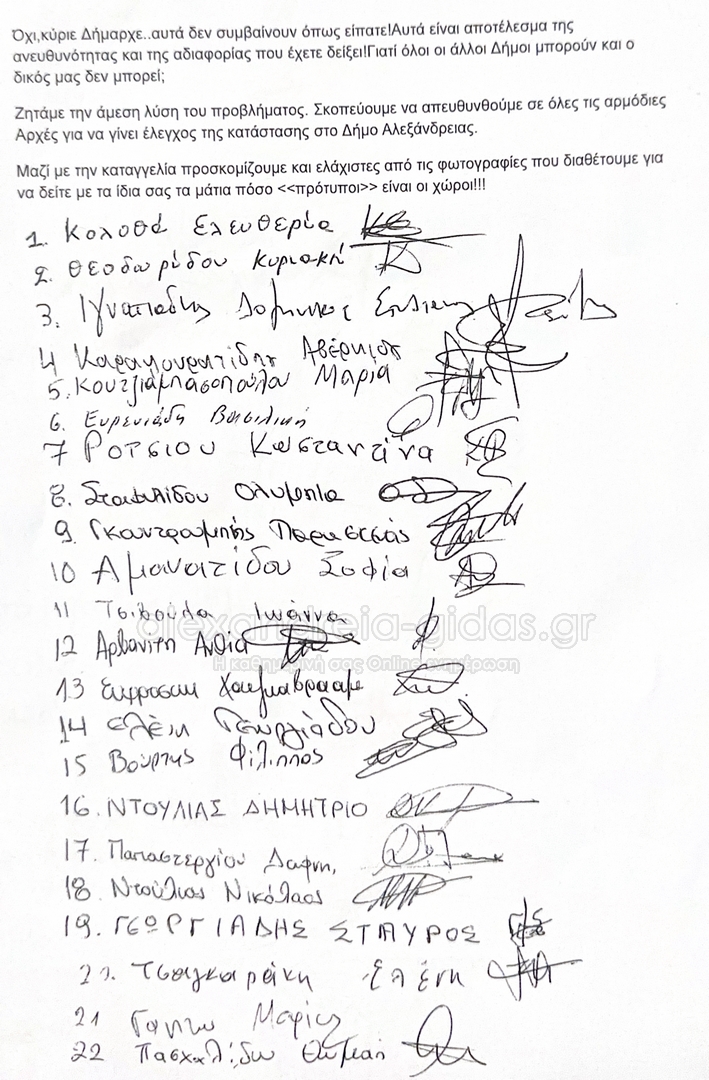 Όχι,κύριε Δήμαρχε..αυτά δεν συμβαίνουν όπως είπατε!Αυτά είναι αποτέλεσμα της
ανευθυνότητας και της αδιαφορίας που έχετε δείξει!Γιατί όλοι οι άλλοι Δήμοι μπορούν και ο
δικός μας δεν μπορεί;
Ζητάμε την άμεση λύση του προβλήματος. Σκοπεύουμε να απευθυνθούμε σε όλες τις αρμόδιες
Αρχές για να γίνει έλεγχος της κατάστασης στο Δήμο Αλεξάνδρειας.
Μαζί με την καταγγελία προσκομίζουμε και ελάχιστες από τις φωτογραφίες που διαθέτουμε για
να δείτε με τα ίδια σας τα μάτια πόσο <<πρότυποι>> είναι οι χώροι!!!
1. Κολοθά Ελευθερία
2. Θεοδωρίδου Κυριακή
3. Ιγνατιάδης
4 Καραμουρατίδης
5. Κουτζιαμπασοπούλου Μαρία
6. Βασιλική
7 Ροτσιου Κωσταντίνα
8. Ολυμπία
9.
10 Αμανατίδου Σοφία
11 Τσιβούλα Ιωάννα
alexandreia-gidas.gr
12 Αρβανίτη Ανθία
Η καθημερινή σας Online ενημέρωση
13
14 Ελένη Γεωργιάδου
15 Βούρτης Φίλιππος
16. ΝΤΟΥΛΙΑΣ ΔΗΜΗΤΡΙΟ
17. Παπαστεργίου Δαφνη,
18. Ντούλιας Νικόλαος
19. ΓΕΩΡΓΙΑΔΗΣ ΣΤΑΥΡΟΣ
Τσαγκαράκη Ελένη
21
22 Πασχαλίδου